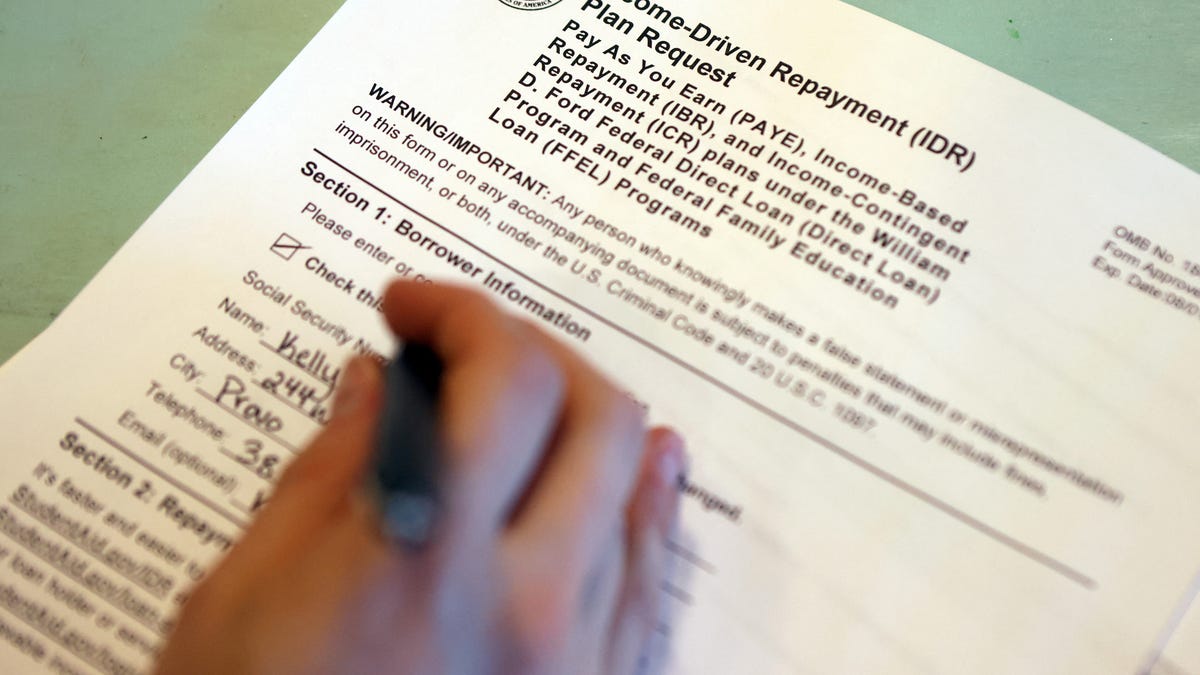 OF AMERICA
come-Driven Repayment (IDR)
Plan Request
Pay As You Earn (PAYE), Income-Based
Repayment (IBR), and Income-Contingent
Repayment (ICR) plans under the William
D. Ford Federal Direct Loan (Direct Loan)
Program and Federal Family Education
Loan (FFEL) Programs
OMB No.
Form Approve
Exp. Date:08/
WARNING/IMPORTANT: Any person who knowingly makes a false statement or misrepresentation
on this form or on any accompanying document is subject to penalties that may include fines,
imprisonment, or both, under the U.S. Criminal Code and 20 U.S.C. 1097.
Section 1: Borrower Information
Please enter or co
Check this
Social Security Num
Name: Kelly
Address: 244
City: Provo
Telephone: 38
Email (optional)
Section 2: Repaym
It's faster and easier
StudentAid.gov/IDR